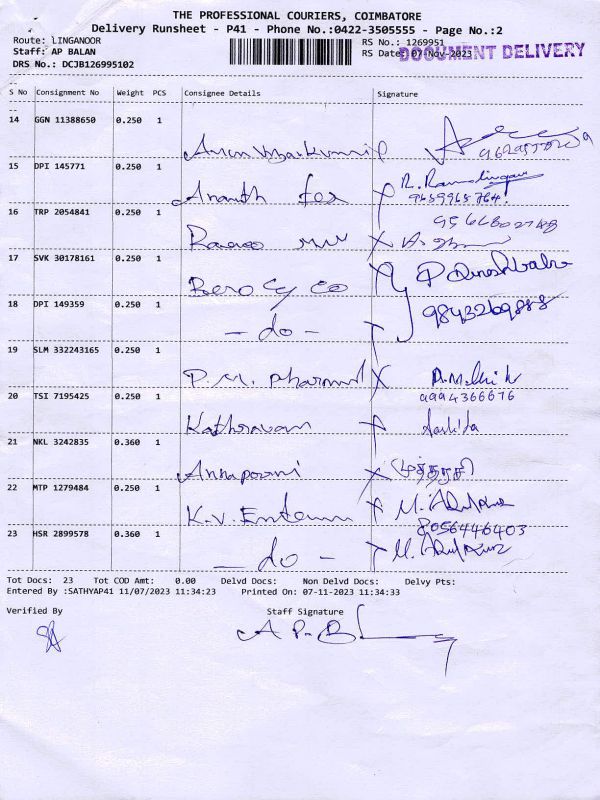 THE PROFESSIONAL COURIERS, COIMBATORE
Delivery Runsheet - P41 - Phone No.:0422-3505555 - Page No.:2
Route: LINGANOOR
Staff: AP BALAN
DRS No.: DCJB126995102
RS No.: 1269951
RS Date: 07-Nov-2023
DOCUMENT DELIVERY
S No Consignment No Weight PCS Consignee Details Signature
14 GGN 11388650 0.250 1
15 DPI 145771 0.250 1 Ananth fox
9659965764
16 TRP 2054841 0.250 1
17 SVK 30178161 0.250 1 Bero Cy co P Dineshbabu
18 DPI 149359 0.250 1 - do - 9843269888
19 SLM 332243165 0.250 1 P. M. pharma
20 TSI 7195425 0.250 1 Kathiravan 9994366676
21 NKL 3242835 0.360 1 Annapoorni
22 MTP 1279484 0.250 1 K.V. M. Arulkumar
8056446403
23 HSR 2899578 0.360 1 - do -
Tot Docs: 23 Tot COD Amt: 0.00 Delvd Docs: Non Delvd Docs: Delvy Pts:
Entered By :SATHYAP41 11/07/2023 11:34:23 Printed On: 07-11-2023 11:34:33
Verified By Staff Signature